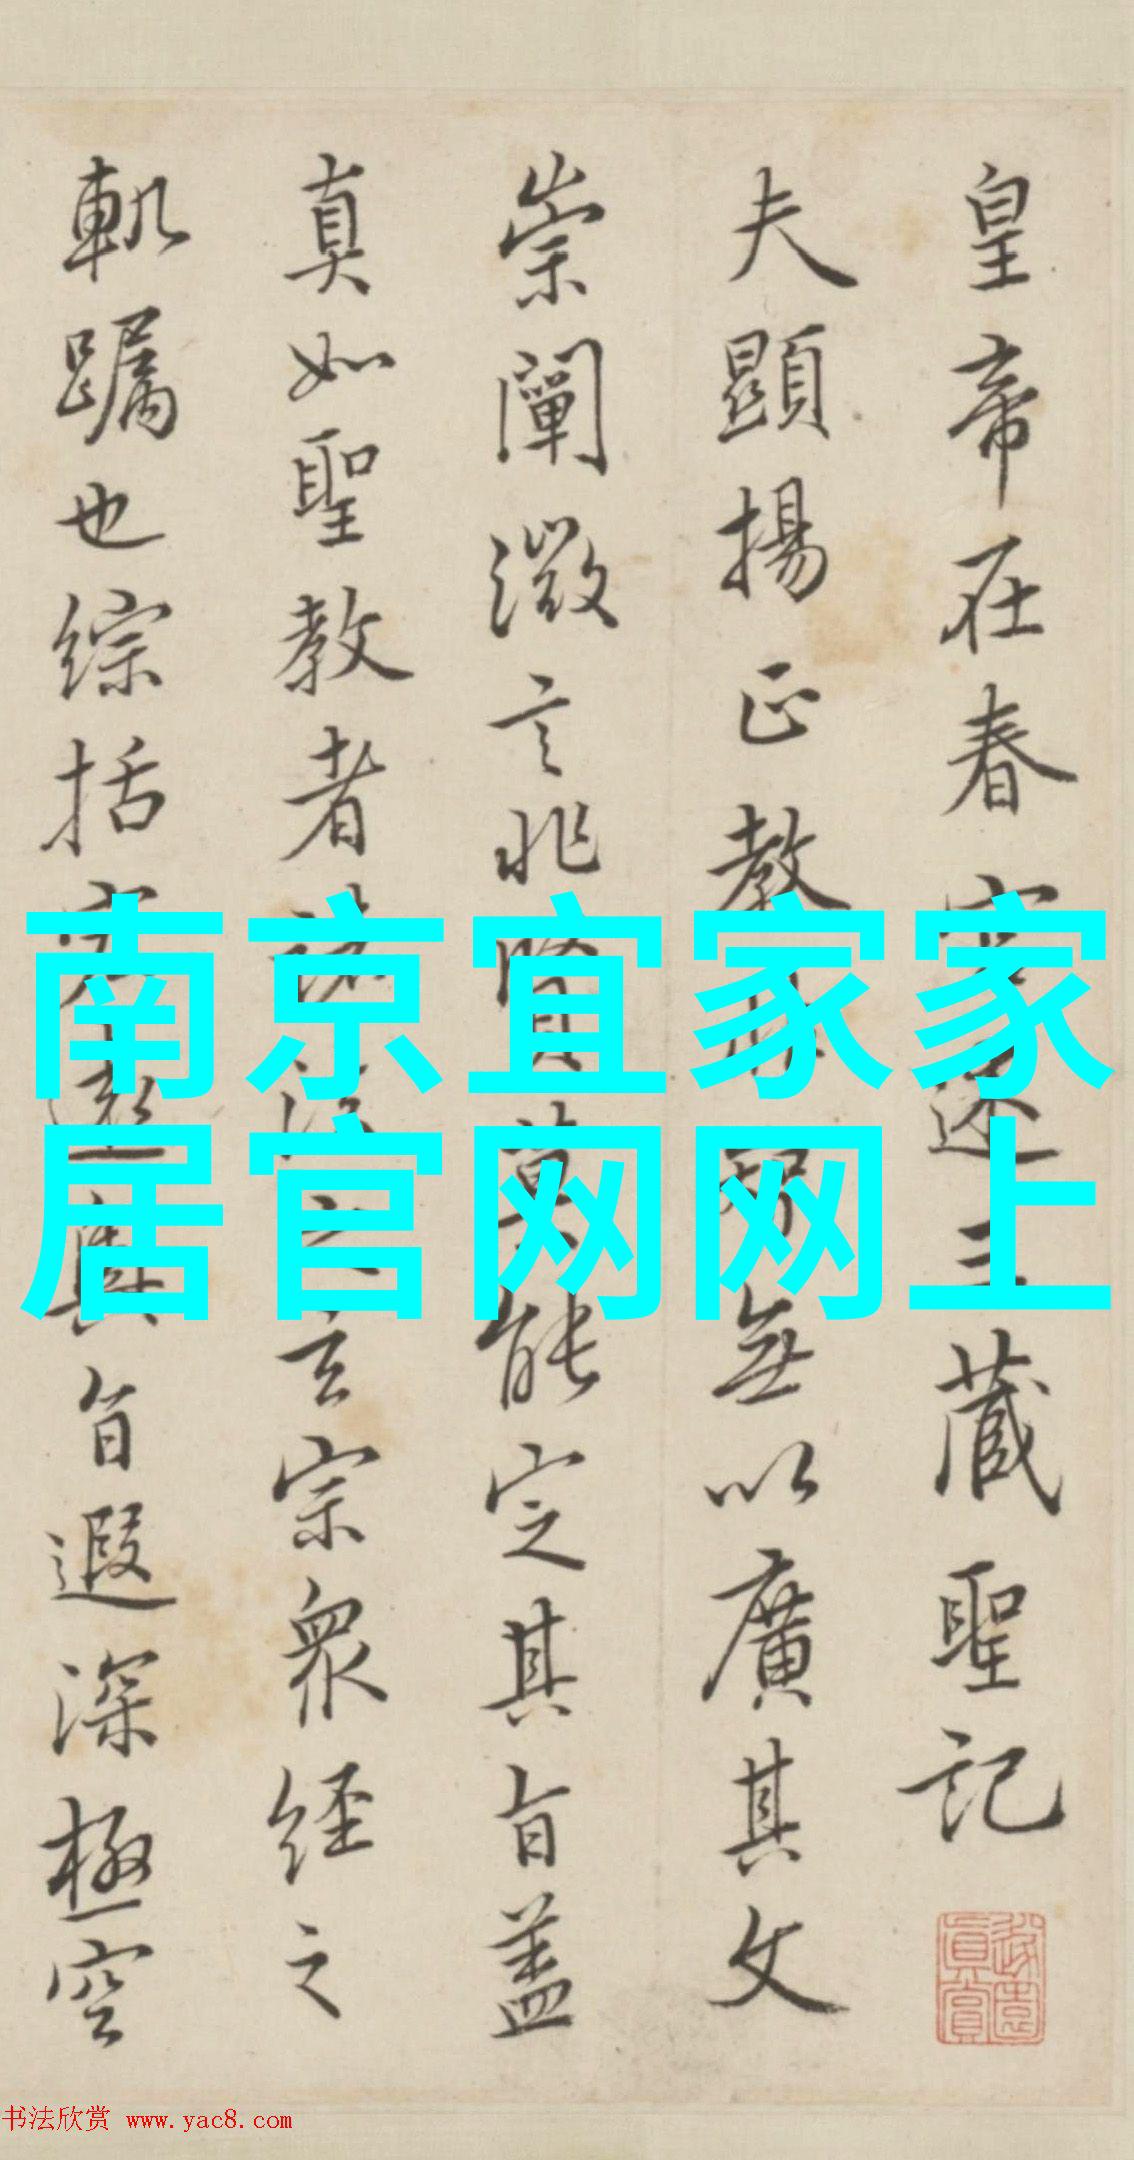 皇帝在春宮述三藏聖記
夫顯揚正教非智無以廣其文
崇闡微言非賢莫能定其旨蓋
真如聖教者諸法之玄宗眾經之
軌躅也綜括宏遠奧旨遐深極空
南京宜家家
居官网网上
书法欣赏 www.yac8.com